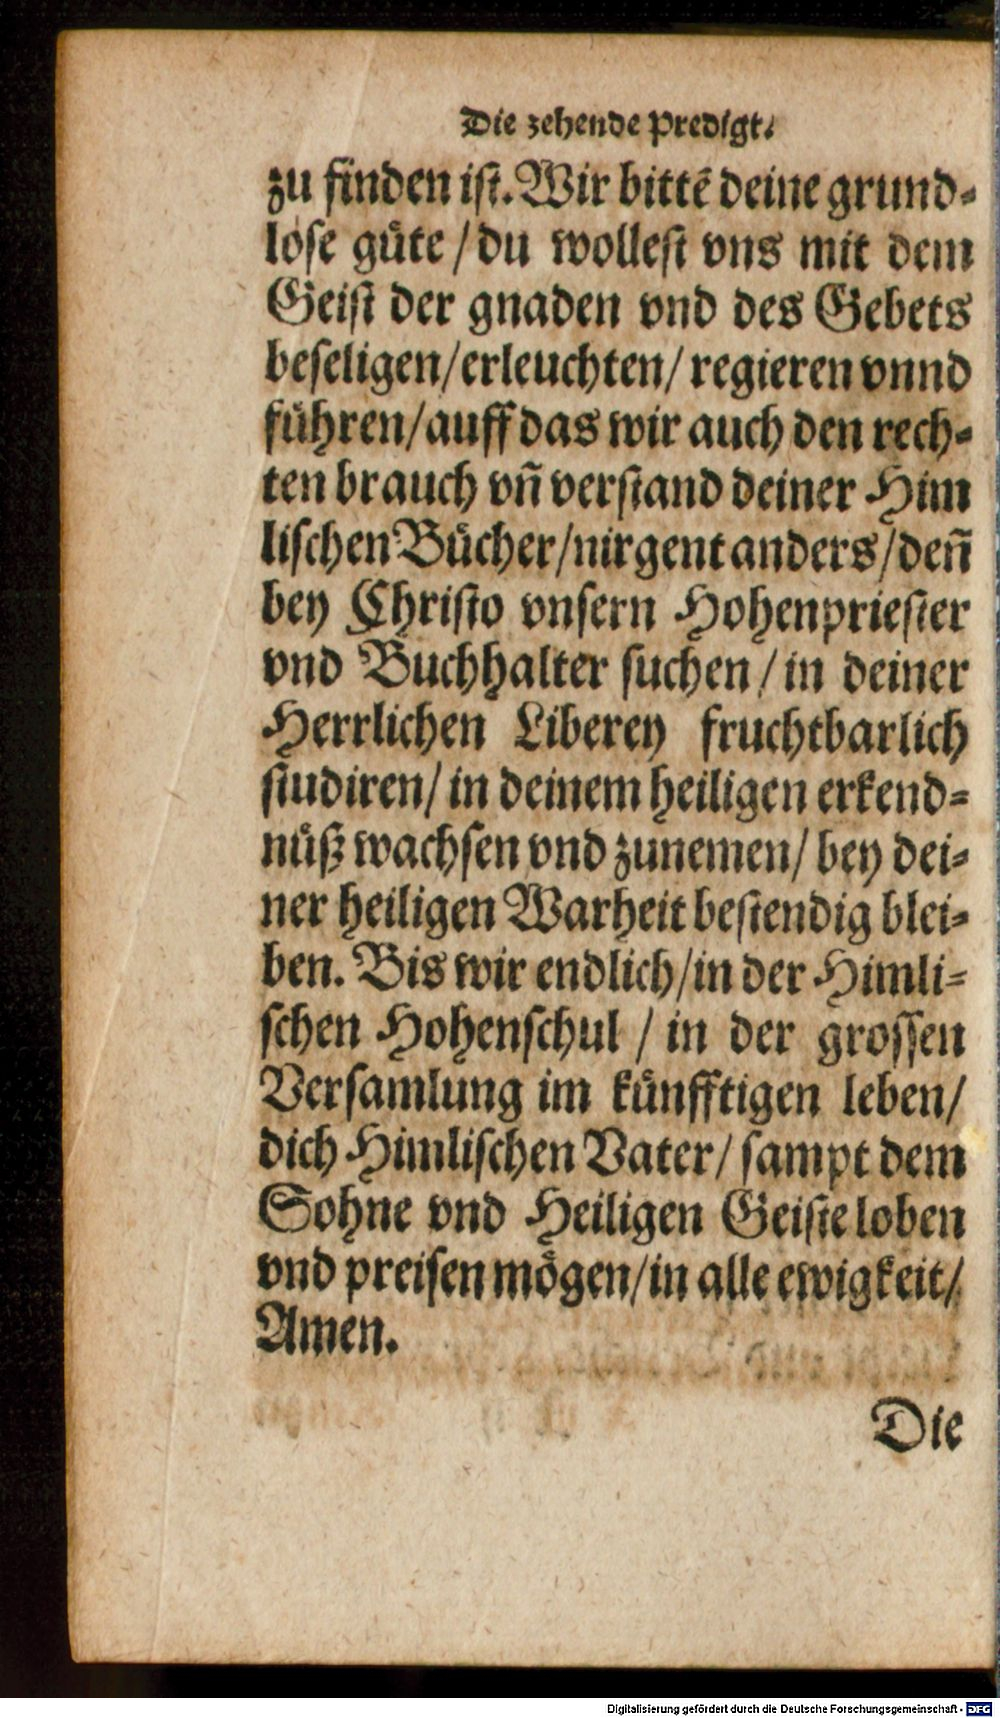 Die zehende Predigt.
zu finden iſt. Wir bittē deine grund⸗
loſe guͤte / du wolleſt vns mit dem
Geiſt der gnaden vnd des Gebets
beſeligen / erleuchten / regieren vnnd
fuͤhren / auff das wir auch den rech⸗
ten brauch vn̄ verſtand deiner Him
liſchen Buͤcher / nirgent anders / den̄
bey Chriſto vnſern Hohenprieſter
vnd Buchhalter ſuchen / in deiner
Herrlichen Liberey fruchtbarlich
ſtudiren / in deinem heiligen erkend⸗
nuͤß wachſen vnd zunemen / bey dei⸗
ner heiligen Warheit beſtendig blei⸗
ben. Bis wir endlich / in der Himli⸗
ſchen Hohenſchul / in der groſſen
Verſamlung im kuͤnfftigen leben /
dich Himliſchen Vater / ſampt dem
Sohne vnd Heiligen Geiſte loben
vnd preiſen moͤgen / in alle ewigkeit /
Amen.
Die
Digitalisierung gefördert durch die Deutsche Forschungsgemeinschaft - DFG